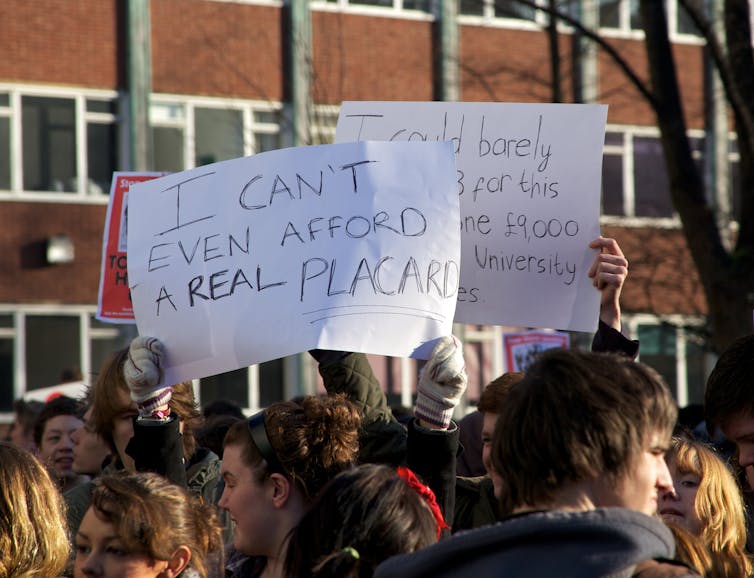 I CAN'T
EVEN AFFORD
A REAL PLACARD
I could barely
3 for this
one £9,000
University
es.